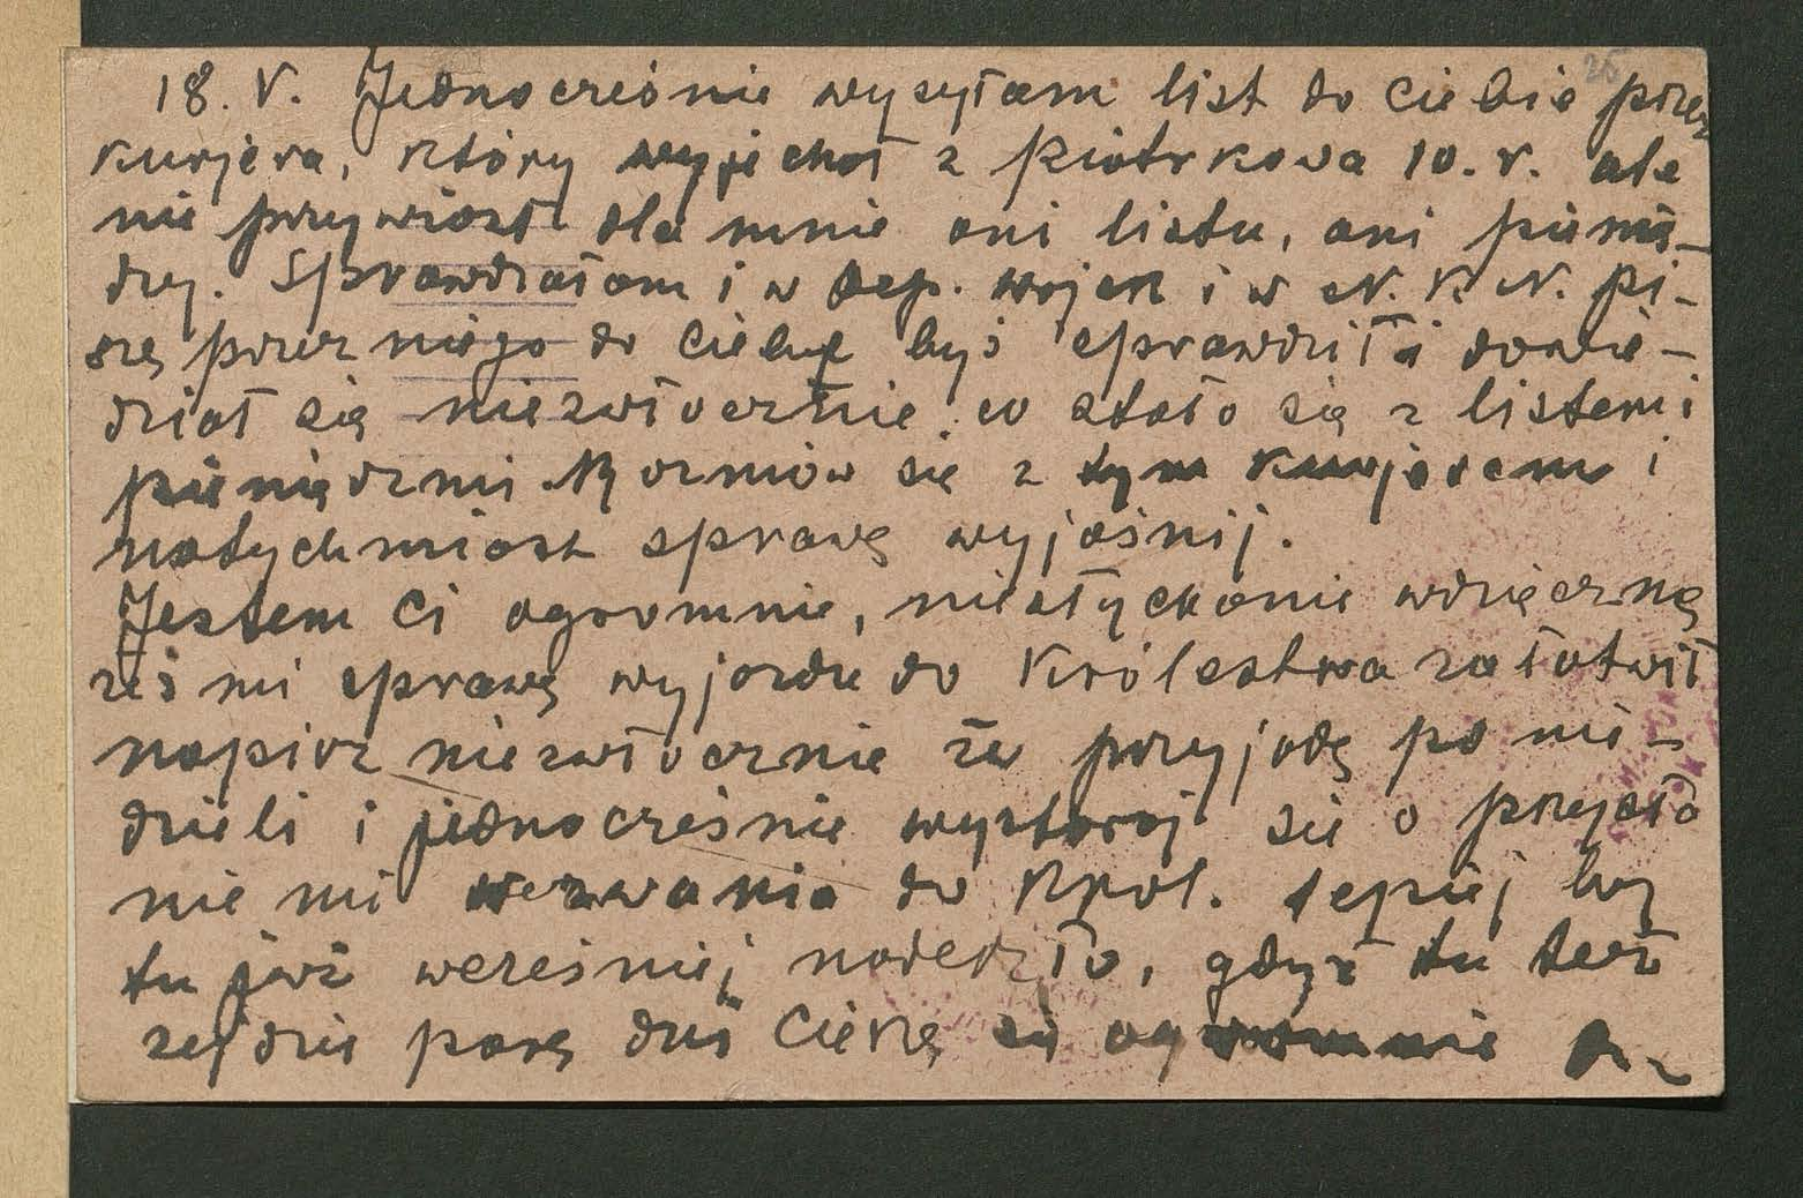 18. V. Jednocześnie wysyłam list do Ciebie przez
kurjera, który wyjechał z Piotrkowa 10. V. ale
nie przywiózł dla mnie ani listu, ani pienię-
dzy. Sprawdzałam i w Dep. Wojsk i w N. K. N. Pi-
szę przez niego do Ciebie byś sprawdził i dowie-
dział się niezwłocznie co stało się z listem i
pieniędzmi. Rozmów się z tym kurjerem i
natychmiast sprawę wyjaśnij.
Jestem Ci ogromnie, niesłychanie wdzięczną
żeś mi sprawę wyjazdu do Królestwa załatwił
napisz niezwłocznie że przyjadę po nie-
dzieli i jednocześnie wystaraj się o przysła
nie mi wezwania do Król. lepiej by
tu już wcześniej nadeszło, gdyż tu też
zejdzie parę dni Cieszę się ogromnie